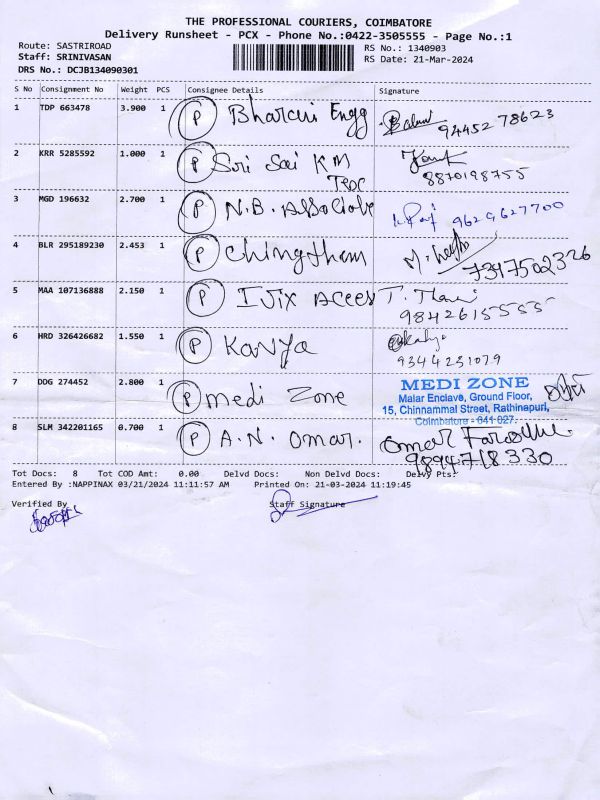 THE PROFESSIONAL COURIERS, COIMBATORE
Delivery Runsheet - PCX - Phone No.:0422-3505555 - Page No.:1
Route: SASTRIROAD
RS No.: 1340903
Staff: SRINIVASAN
RS Date: 21-Mar-2024
DRS No.: DCJB134090301
S No Consignment No Weight PCS Consignee Details Signature
1 TDP 663478 3.900 1 P Engg 94452 78623
2 KRR 5285592 1.000 1 P Sri Sai KM
8870198755
3 MGD 196632 2.700 1 P N.B. Associate 9629627700
4 BLR 295189230 2.453 1 P Chingtham 7397502326
5 MAA 107136888 2.150 1 P
9842615555
6 HRD 326426682 1.550 1 P Kavya
9344251079
7 DDG 274452 2.800 1 P medi Zone
MEDI ZONE
Malar Enclave, Ground Floor,
15, Chinnammal Street, Rathinapuri,
Coimbatore - 641 027.
8 SLM 342201165 0.700 1 P A.N. Omar. Omar
9894718330
Tot Docs: 8 Tot COD Amt: 0.00 Delvd Docs: Non Delvd Docs: Delvy Pts:
Entered By :NAPPINAX 03/21/2024 11:11:57 AM Printed On: 21-03-2024 11:19:45
Verified By Staff Signature